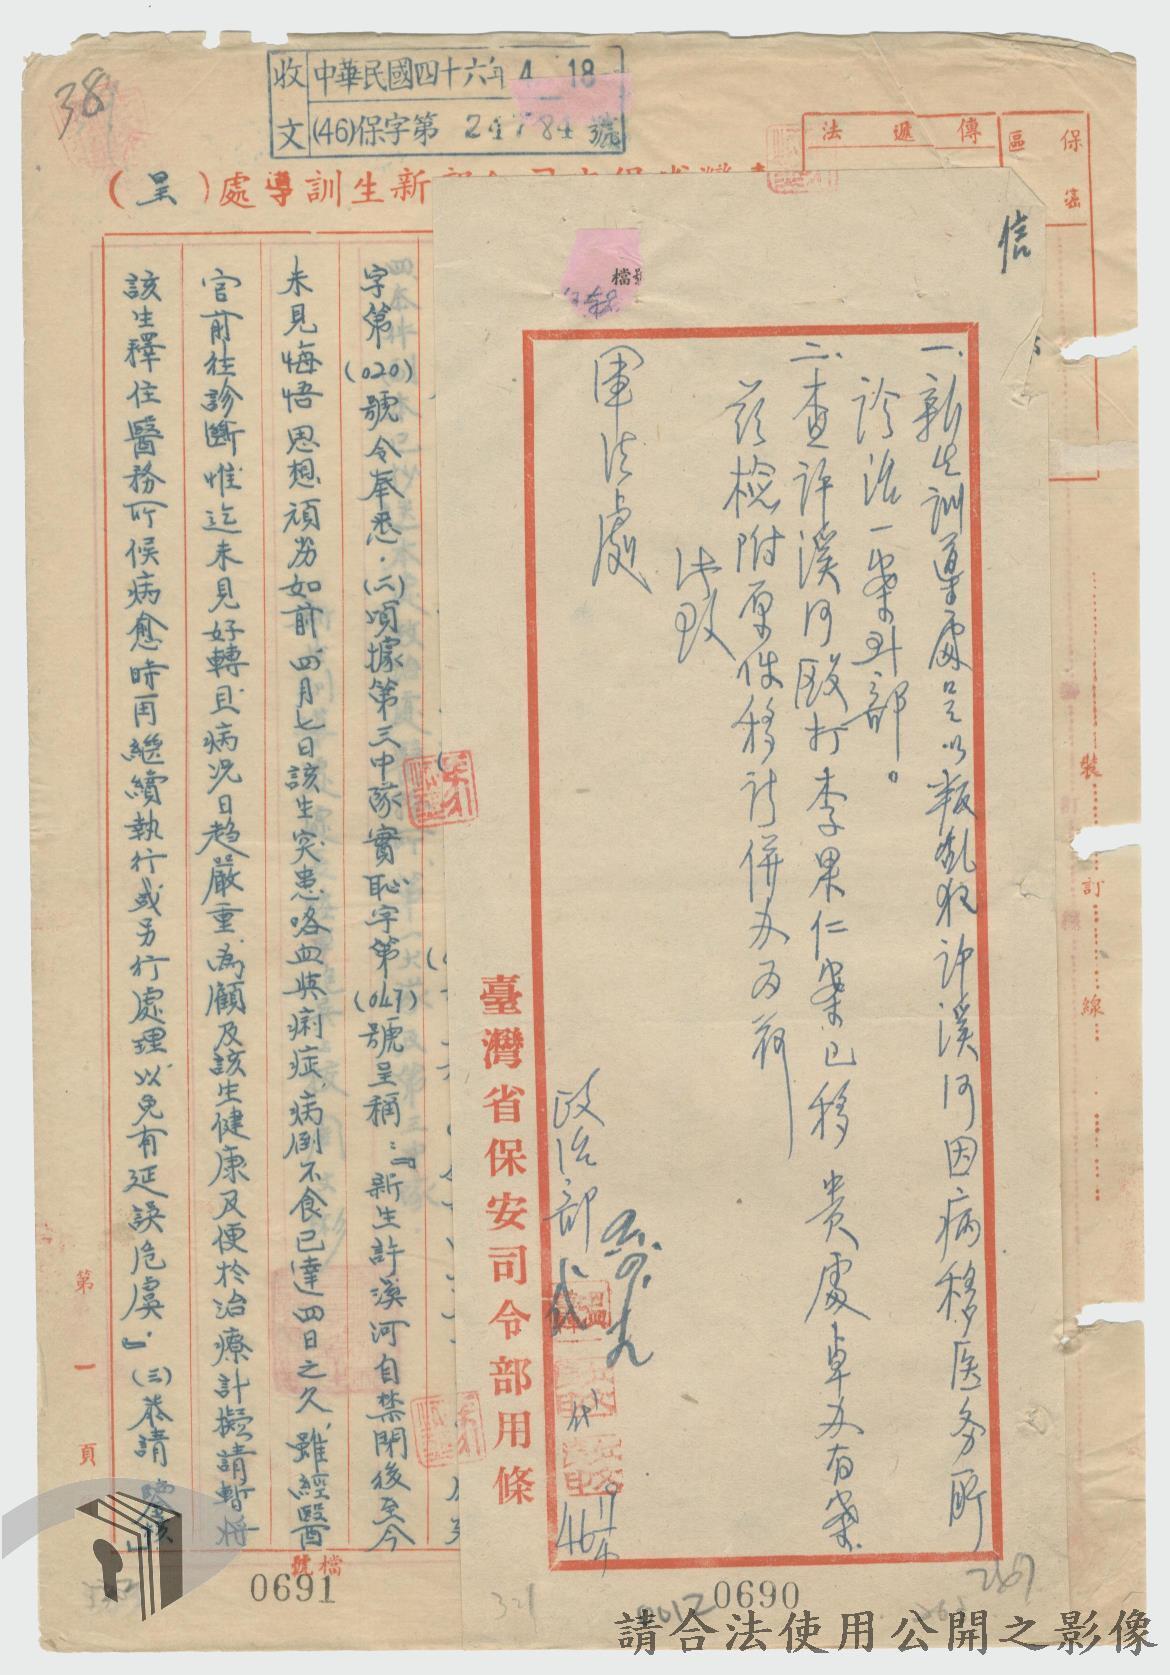 38
收文
中華民國四十六年 4 18
(46)保字第 24784 號
保密區
傳遞法
新生訓導處(呈)
信
檔號
一、新生訓導處呈以叛亂犯許溪河因病移医务所
診治一案到部。
二、查許溪河毆打李果仁案已移 貴處卓办有案
茲檢附原件移請併办为荷
此致
軍法處
政治部
代
46
臺灣省保安司令部用條
0690
字第(020)號令奉悉．(二)頃據第三中隊實恥字第(047)號呈稱：『新生許溪河自禁閉後至今
未見悔悟思想頑劣如前四月七日該生突患咯血與痢症病倒不食已達四日之久雖經醫
官前往診斷惟迄未見好轉且病況日趨嚴重為顧及該生健康及便於治療計擬請暫將
該生釋住醫務所候病愈時再繼續執行或另行處理以免有延誤危虞』(三)恭請 鑒核
裝
訂
線
第一頁
檔號
0691
請合法使用公開之影像